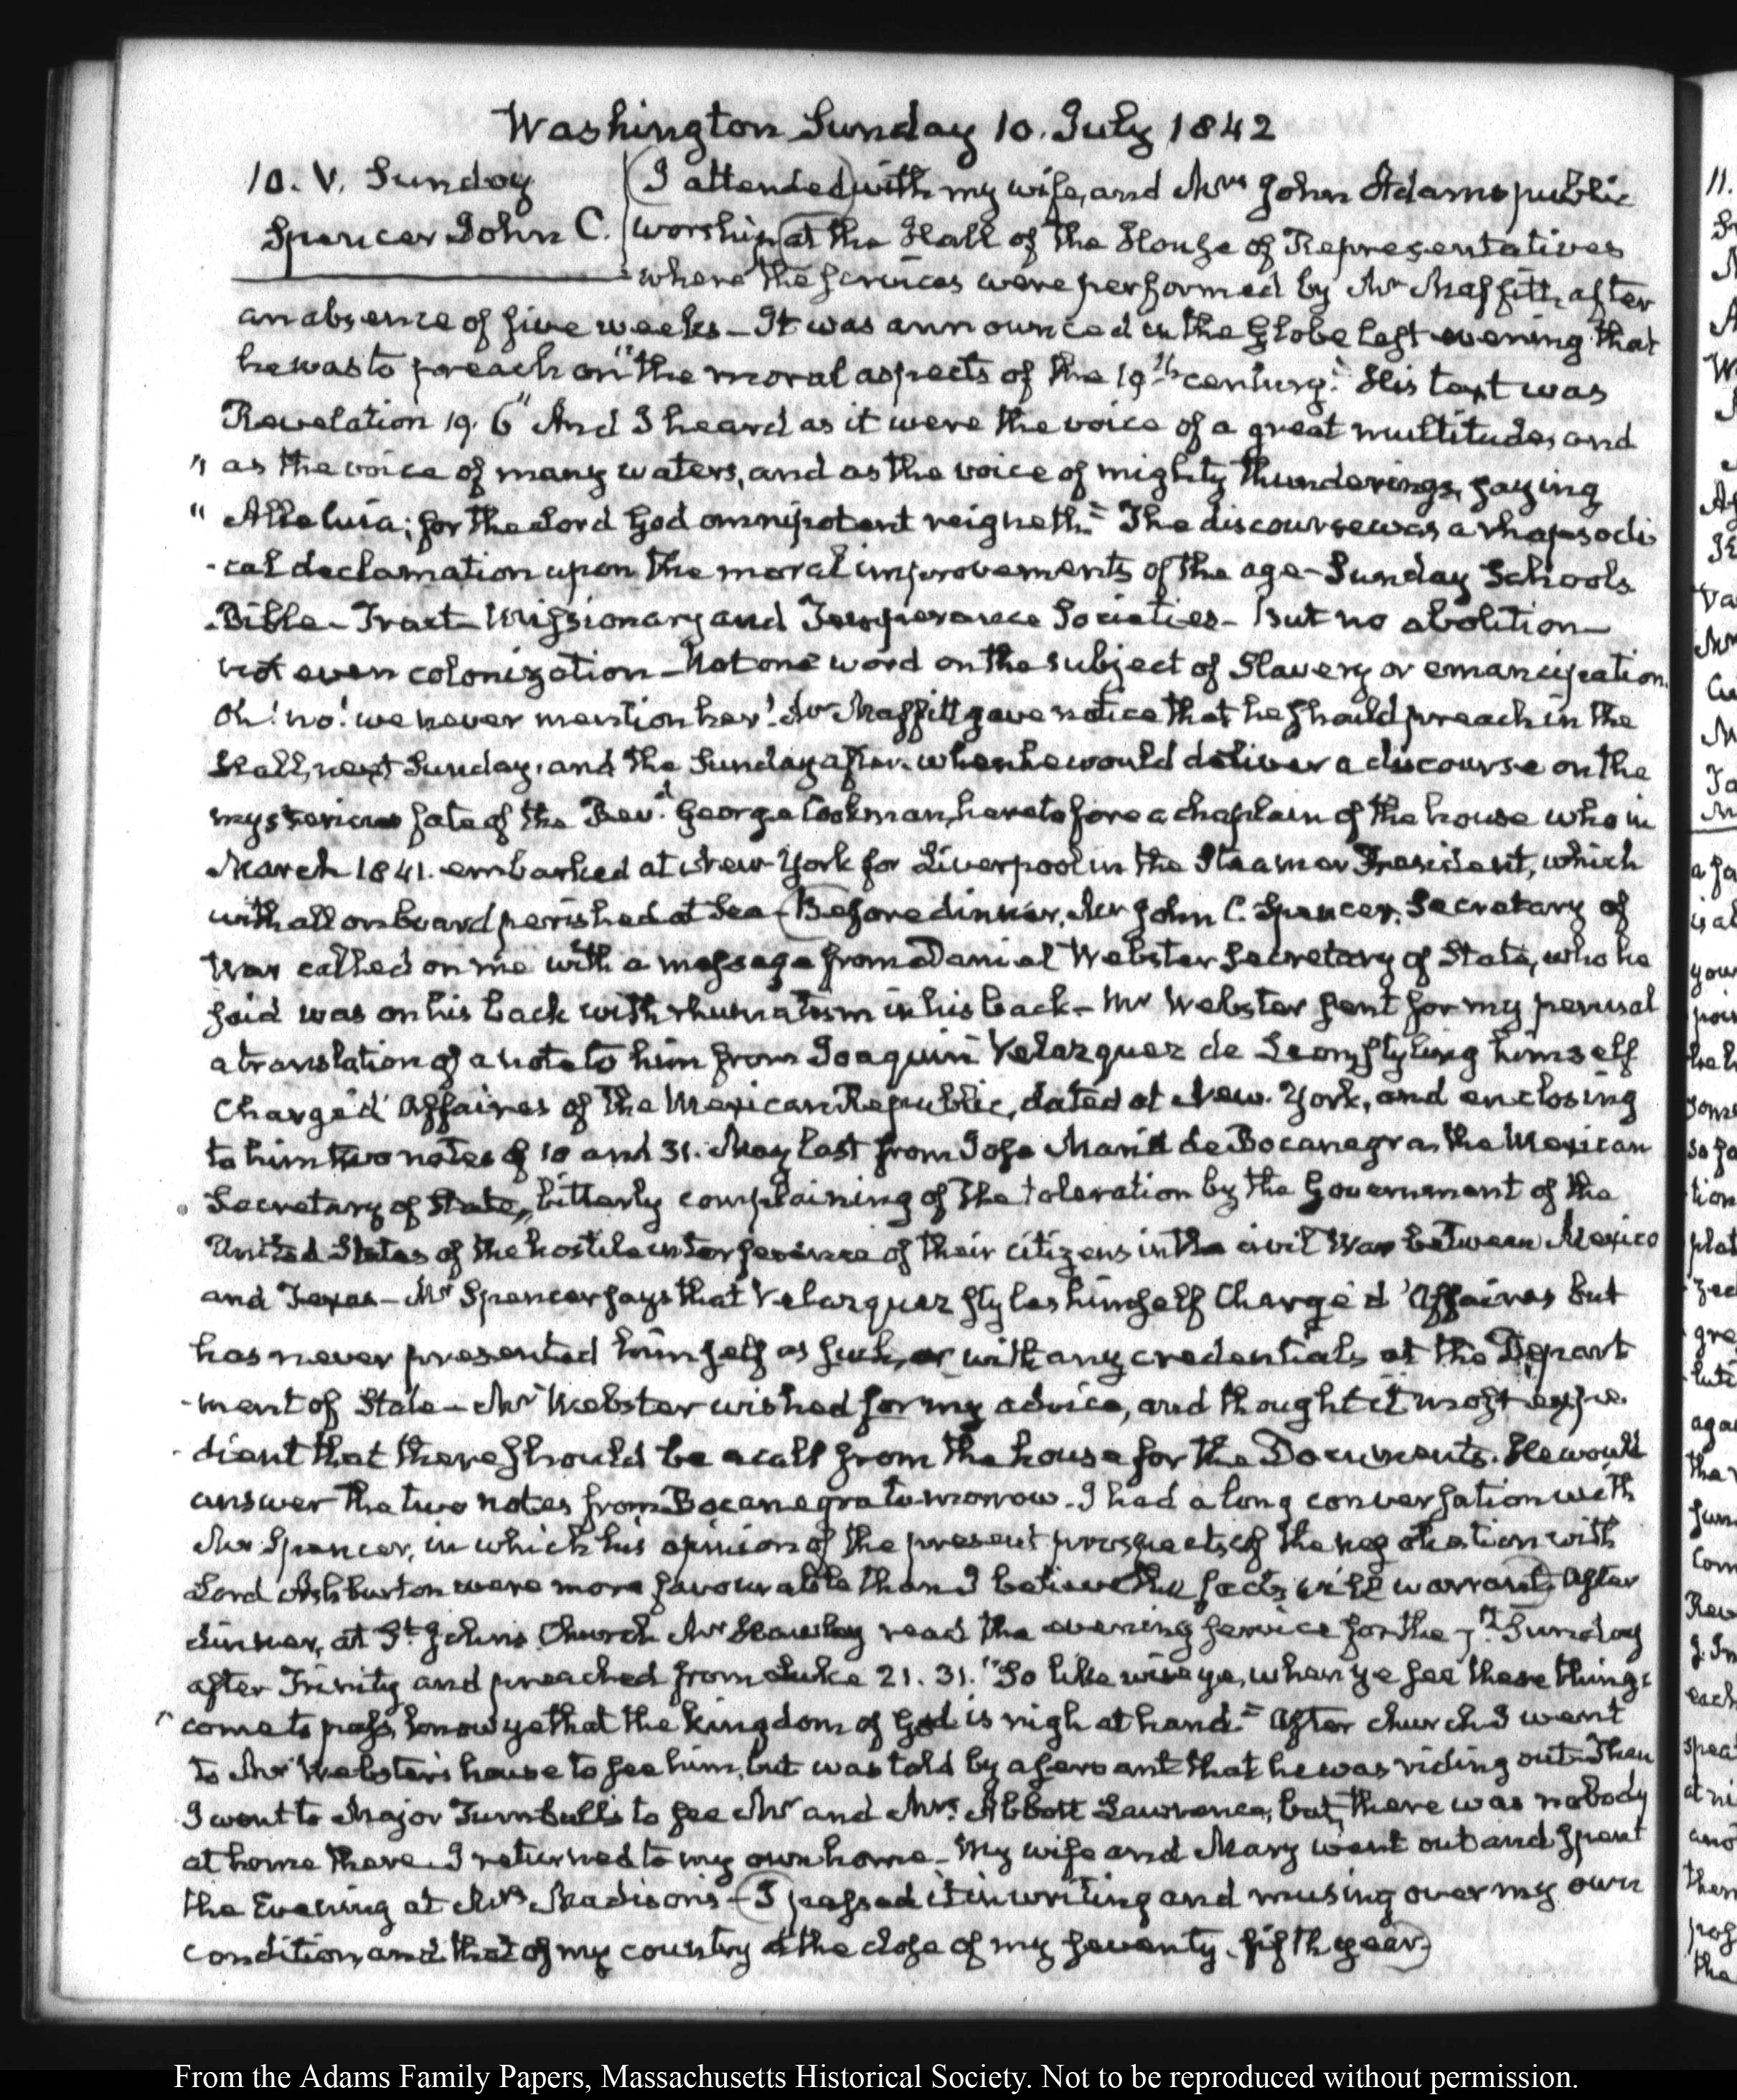 Washington Sunday 10. July 1842
10. V. Sunday
Spencer John C.
I attended with my wife, and Mrs John Adams public
worship at the Hall of the House of Representatives
where the services were performed by Mr Maffitt, after
an absence of five weeks – It was announced in the Globe last evening that
he was to preach on "the moral aspects of the 19th century." His text was
Revelation 19. 6 "And I heard as it were the voice of a great multitude, and
" as the voice of many waters, and as the voice of mighty thunderings, saying
" Alleluia; for the Lord God omnipotent reigneth." The discourse was a rhapsodi
-cal declamation upon the moral improvements of the age – Sunday Schools
Bible – Tract – Missionary and Temperance Societies – But no abolition –
not even colonization – Not one word on the subject of Slavery or emancipation.
Oh! no! we never mention her! Mr Maffitt gave notice that he should preach in the
Hall, next Sunday, and the Sunday after when he would deliver a discourse on the
mysterious fate of the Revd. George Cookman, heretofore a chaplain of the house who in
March 1841. embarked at New-York for Liverpool in the Steamer President, which
with all on board perished at Sea – Before dinner, Mr John C. Spencer, Secretary of
War called on me with a message from Daniel Webster Secretary of State, who he
said was on his back with rhumatism in his back – Mr Webster sent for my perusal
a translation of a note to him from Joaquin Velazquez de Leon, styling himself
Chargé d'Affaires of the Mexican Republic, dated at New-York, and enclosing
to him two notes of 10 and 31. May last from Jose Maria de Bocanegra, the Mexican
Secretary of State, bitterly complaining of the toleration by the Government of the
United States of the hostile interference of their citizens in the civil War between Mexico
and Texas – Mr Spencer says that Velazquez styles himself Chargé d'Affaires but
has never presented himself as such, or with any credentials at the Depart
-ment of State – Mr Webster wished for my advice, and thought it most expe
-dient that there should be a call from the house for the Documents. He would
answer the two notes from Bocanegra to-morrow. I had a long conversation with
Mr Spencer, in which his opinion of the present prospects of the negotiation with
Lord Ashburton were more favourable than I believe the facts will warrant. After
dinner, at St. John's Church Mr Hawley read the evening service for the 7th Sunday
after Trinity and preached from Luke 21. 31. "So likewise ye, when ye see these things
" come to pass, know ye that the kingdom of God is nigh at hand." After church I went
to Mr Webster's house to see him, but was told by a servant that he was riding out. Then
I went to Major Turnbull's to see Mr and Mrs. Abbott Lawrence, but there was nobody
at home there. I returned to my own home – My wife and Mary went out and spent
the Evening at Mrs Madison's – I passed it in writing and musing over my own
condition, and that of my country at the close of my seventy-fifth year.
From the Adams Family Papers, Massachusetts Historical Society. Not to be reproduced without permission.